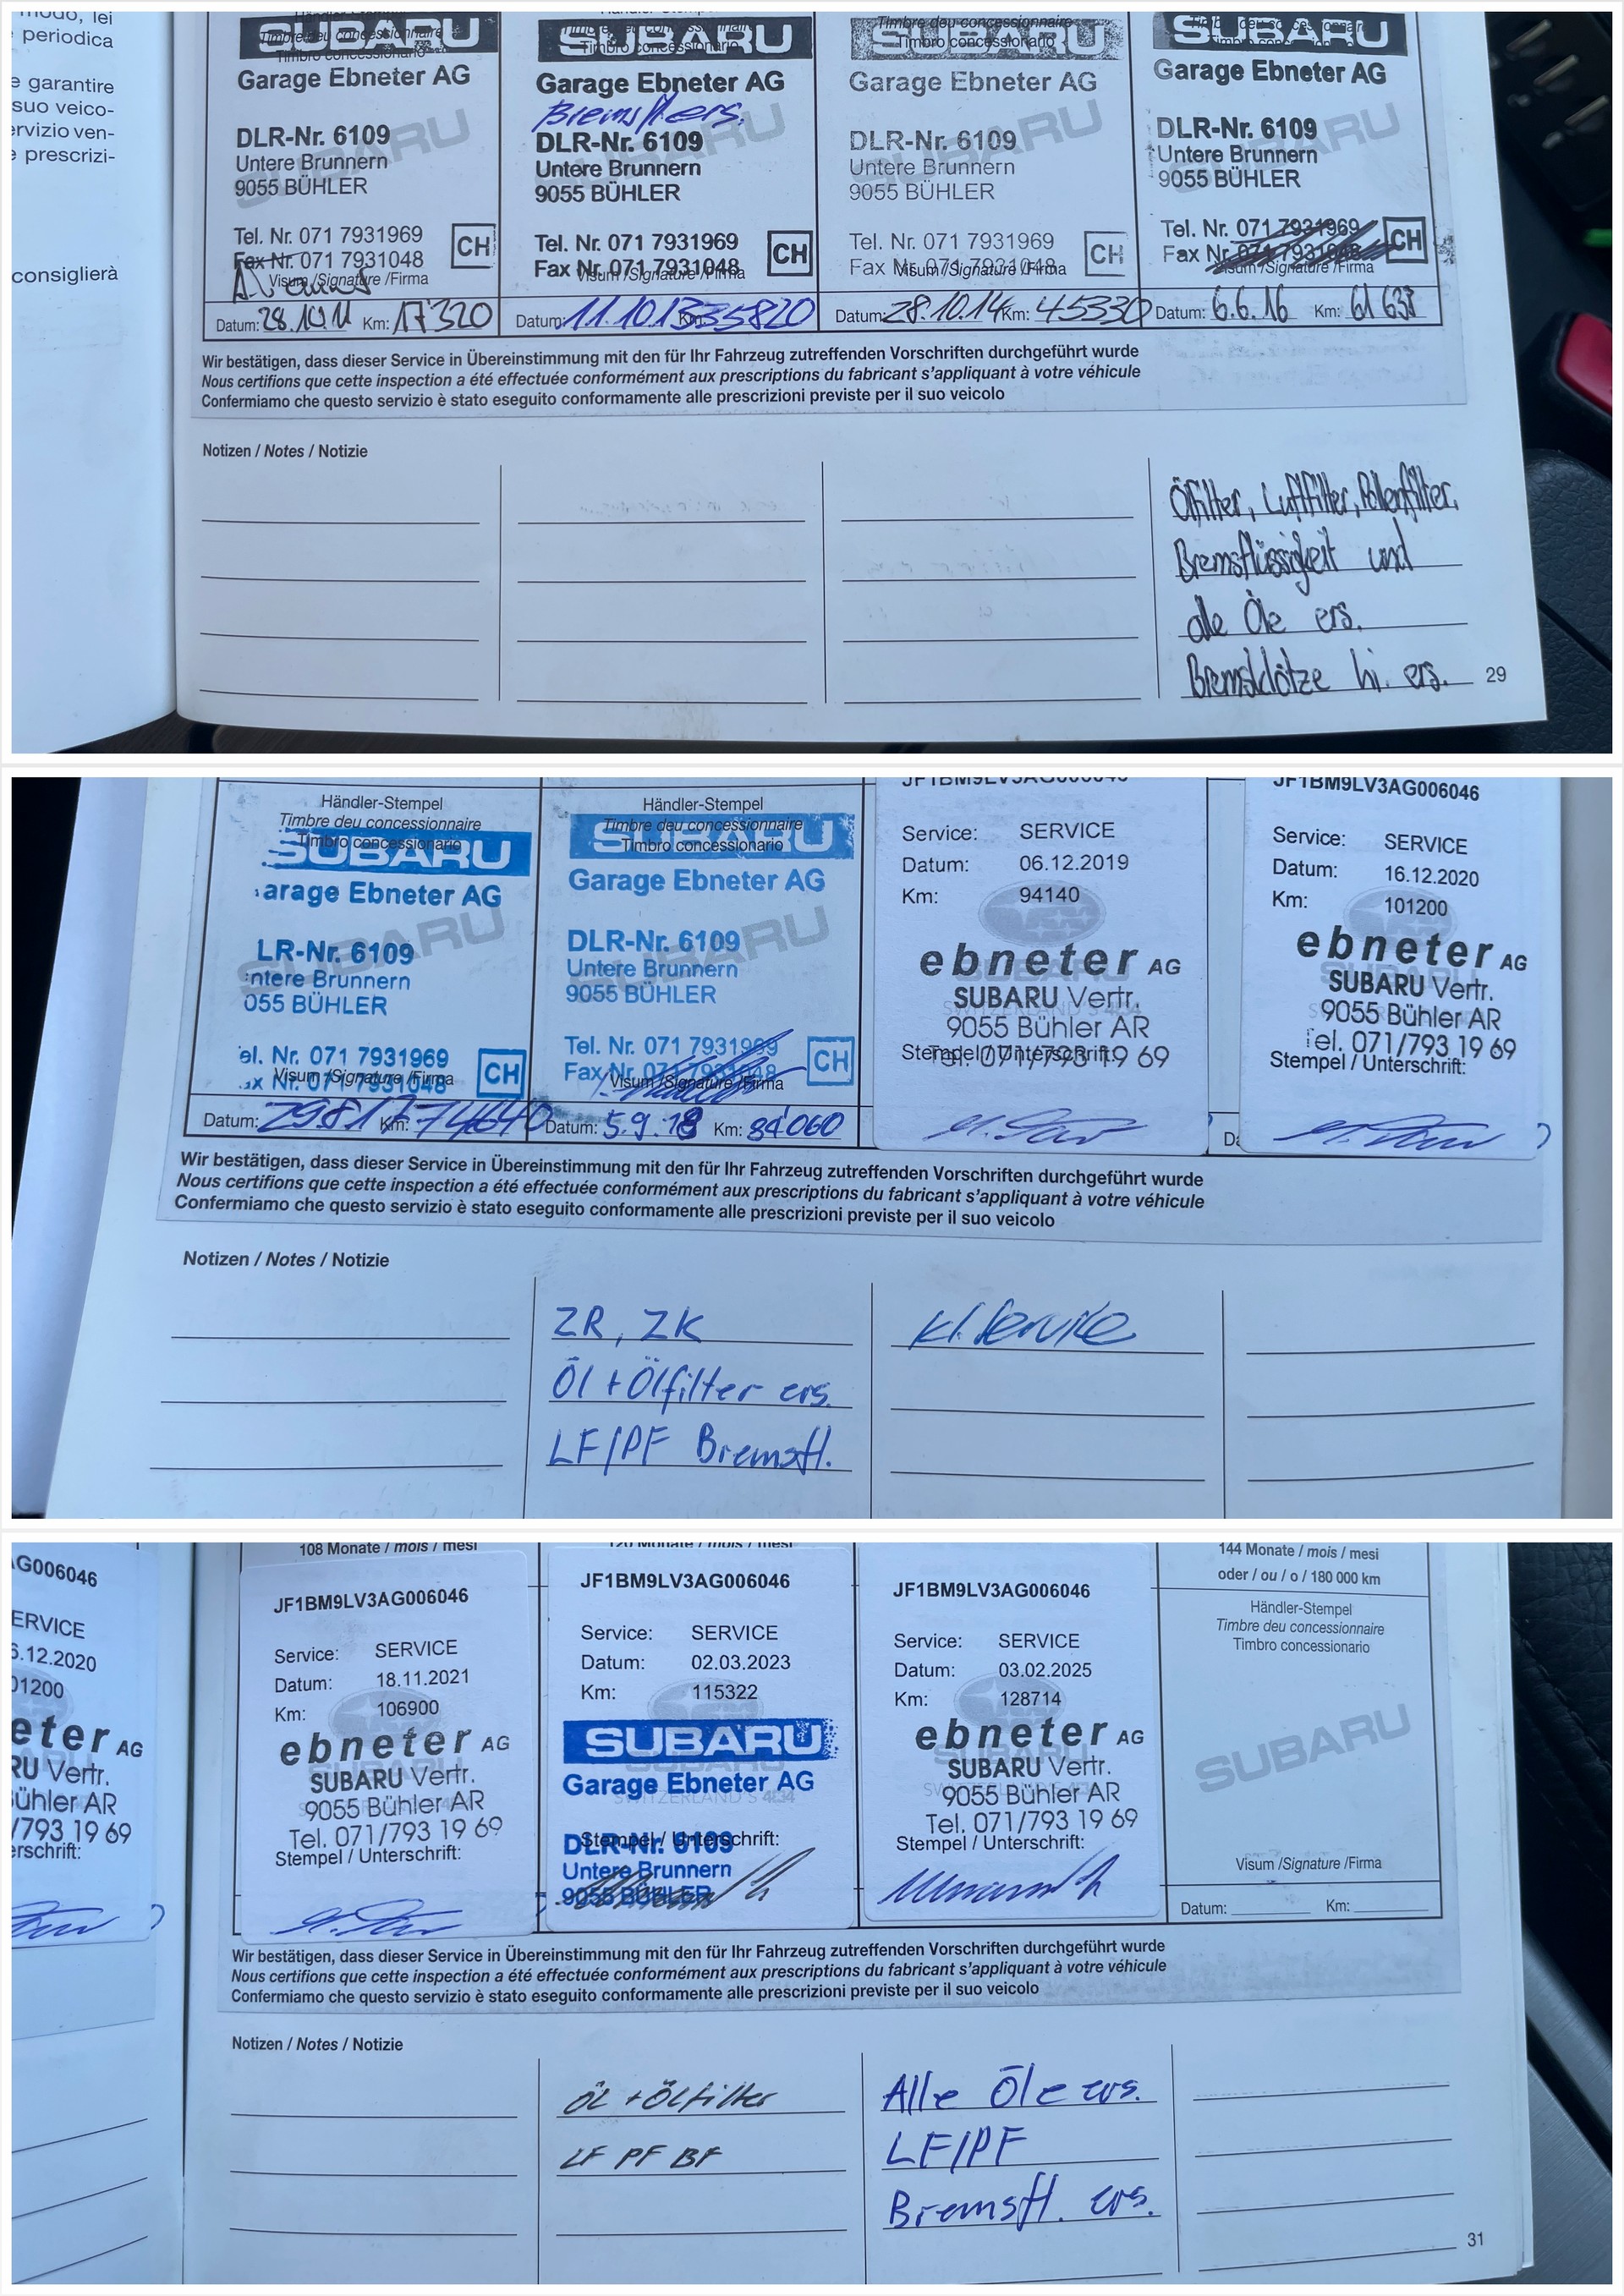 modo, lei
periodica
e garantire
suo veico-
ervizio ven-
e prescrizi-
consiglierà
Timbre deu concessionnaire
Timbro concessionario
SUBARU
Garage Ebneter AG
DLR-Nr. 6109
Untere Brunnern
9055 BÜHLER
SUBARU
Tel. Nr. 071 7931969
Fax Nr. 071 7931048
CH
Visum /Signature /Firma
Datum: 28.10 11 Km: 17320
Timbro concessionario
SUBARU
Garage Ebneter AG
Bremsfl ers.
DLR-Nr. 6109
Untere Brunnern
9055 BÜHLER
SUBARU
Tel. Nr. 071 7931969
Fax Nr. 071 7931048
CH
Visum /Signature /Firma
Datum: 11.10.13 Km: 35820
Timbre deu concessionnaire
Timbro concessionario
SUBARU
Garage Ebneter AG
DLR-Nr. 6109
Untere Brunnern
9055 BÜHLER
SUBARU
Tel. Nr. 071 7931969
Fax Nr. 071 7931048
CH
Visum /Signature /Firma
Datum: 28.10.14 Km: 45330
SUBARU
Garage Ebneter AG
DLR-Nr. 6109
Untere Brunnern
9055 BÜHLER
SUBARU
Tel. Nr. 071 7931969
Fax Nr. 071 7931048
CH
Visum /Signature /Firma
Datum: 6.6.16 Km: 61638
Wir bestätigen, dass dieser Service in Übereinstimmung mit den für Ihr Fahrzeug zutreffenden Vorschriften durchgeführt wurde
Nous certifions que cette inspection a été effectuée conformément aux prescriptions du fabricant s'appliquant à votre véhicule
Confermiamo che questo servizio è stato eseguito conformamente alle prescrizioni previste per il suo veicolo
Notizen / Notes / Notizie
Ölfilter, Luftfilter, Pollenfilter,
Bremsflüssigkeit und
alle Öle ers.
Bremsklötze hi. ers.
29
Händler-Stempel
Timbre deu concessionnaire
Timbro concessionario
SUBARU
arage Ebneter AG
LR-Nr. 6109
ntere Brunnern
055 BÜHLER
SUBARU
el. Nr. 071 7931969
ax Nr. 071 7931048
CH
Visum /Signature /Firma
Datum: 29817 Km: 74640
Händler-Stempel
Timbre deu concessionnaire
Timbro concessionario
SUBARU
Garage Ebneter AG
DLR-Nr. 6109
Untere Brunnern
9055 BÜHLER
SUBARU
Tel. Nr. 071 7931969
Fax Nr. 071 7931048
CH
Visum /Signature /Firma
Datum: 5.9.18 Km: 84'060
JF1BM9LV3AG006046
Service: SERVICE
Datum: 06.12.2019
Km: 94140
ebneter AG
SUBARU Vertr.
9055 Bühler AR
Tel. 071/793 19 69
Stempel / Unterschrift:
JF1BM9LV3AG006046
Service: SERVICE
Datum: 16.12.2020
Km: 101200
ebneter AG
SUBARU Vertr.
9055 Bühler AR
Tel. 071/793 19 69
Stempel / Unterschrift:
Da
Wir bestätigen, dass dieser Service in Übereinstimmung mit den für Ihr Fahrzeug zutreffenden Vorschriften durchgeführt wurde
Nous certifions que cette inspection a été effectuée conformément aux prescriptions du fabricant s'appliquant à votre véhicule
Confermiamo che questo servizio è stato eseguito conformamente alle prescrizioni previste per il suo veicolo
Notizen / Notes / Notizie
ZR, ZK
Öl + Ölfilter ers.
LF/PF Bremsfl.
kl. Service
G006046
ERVICE
6.12.2020
01200
eter AG
RU Vertr.
ühler AR
/793 19 69
erschrift:
108 Monate / mois / mesi
JF1BM9LV3AG006046
Service: SERVICE
Datum: 18.11.2021
Km: 106900
ebneter AG
SUBARU Vertr.
9055 Bühler AR
Tel. 071/793 19 69
Stempel / Unterschrift:
120 Monate / mois / mesi
JF1BM9LV3AG006046
Service: SERVICE
Datum: 02.03.2023
Km: 115322
SUBARU
Garage Ebneter AG
SWITZERLAND'S 4x4
Stempel / Unterschrift:
DLR-Nr. 6109
Untere Brunnern
9055 BÜHLER
JF1BM9LV3AG006046
Service: SERVICE
Datum: 03.02.2025
Km: 128714
ebneter AG
SUBARU Vertr.
9055 Bühler AR
Tel. 071/793 19 69
Stempel / Unterschrift:
144 Monate / mois / mesi
oder / ou / o / 180 000 km
Händler-Stempel
Timbre deu concessionnaire
Timbro concessionario
SUBARU
Visum /Signature /Firma
Datum: Km:
Wir bestätigen, dass dieser Service in Übereinstimmung mit den für Ihr Fahrzeug zutreffenden Vorschriften durchgeführt wurde
Nous certifions que cette inspection a été effectuée conformément aux prescriptions du fabricant s'appliquant à votre véhicule
Confermiamo che questo servizio è stato eseguito conformamente alle prescrizioni previste per il suo veicolo
Notizen / Notes / Notizie
Öl + Ölfilter
LF PF BF
Alle Öle ers.
LF/PF
Bremsfl. ers.
31